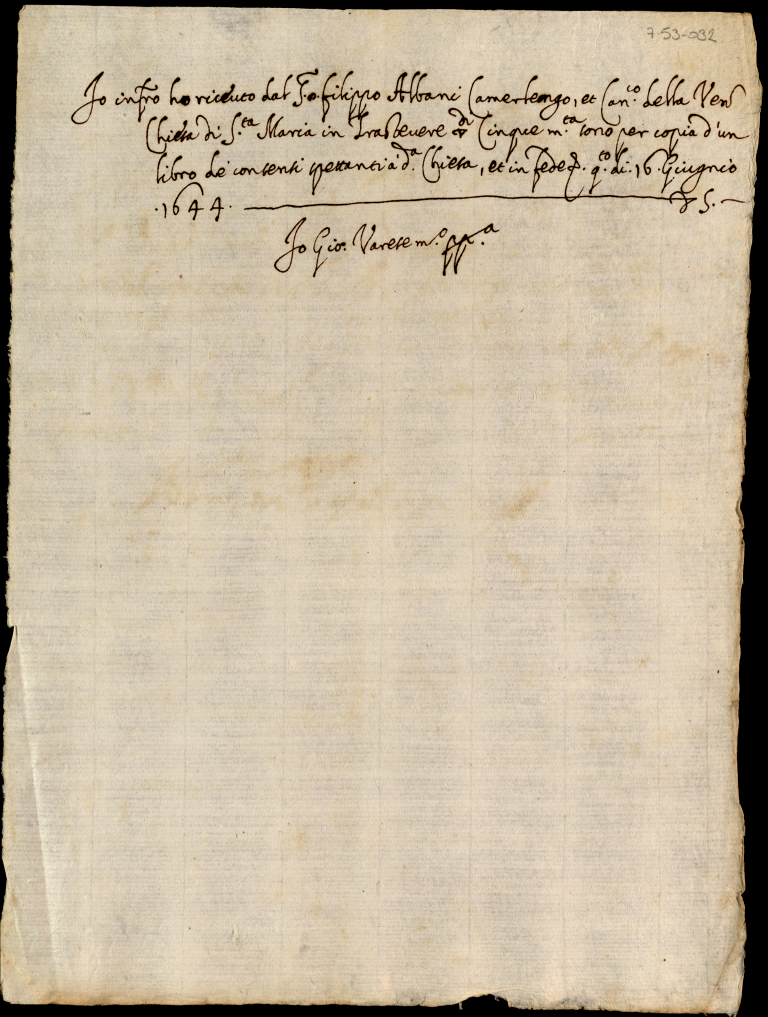 7-53-032
Io infro ho riceuto dal S.r filippo Albani Camerlengo, et Can.co della Ven
Chiesa di S.ta Maria in Trastevere di Cinque m.ta sono per copia d'un
libro de consensi spettanti a d.a Chiesa, et in fede q.to di .16. Giugno
.1644. 5.
Io Gio. Varese m.o pp.a